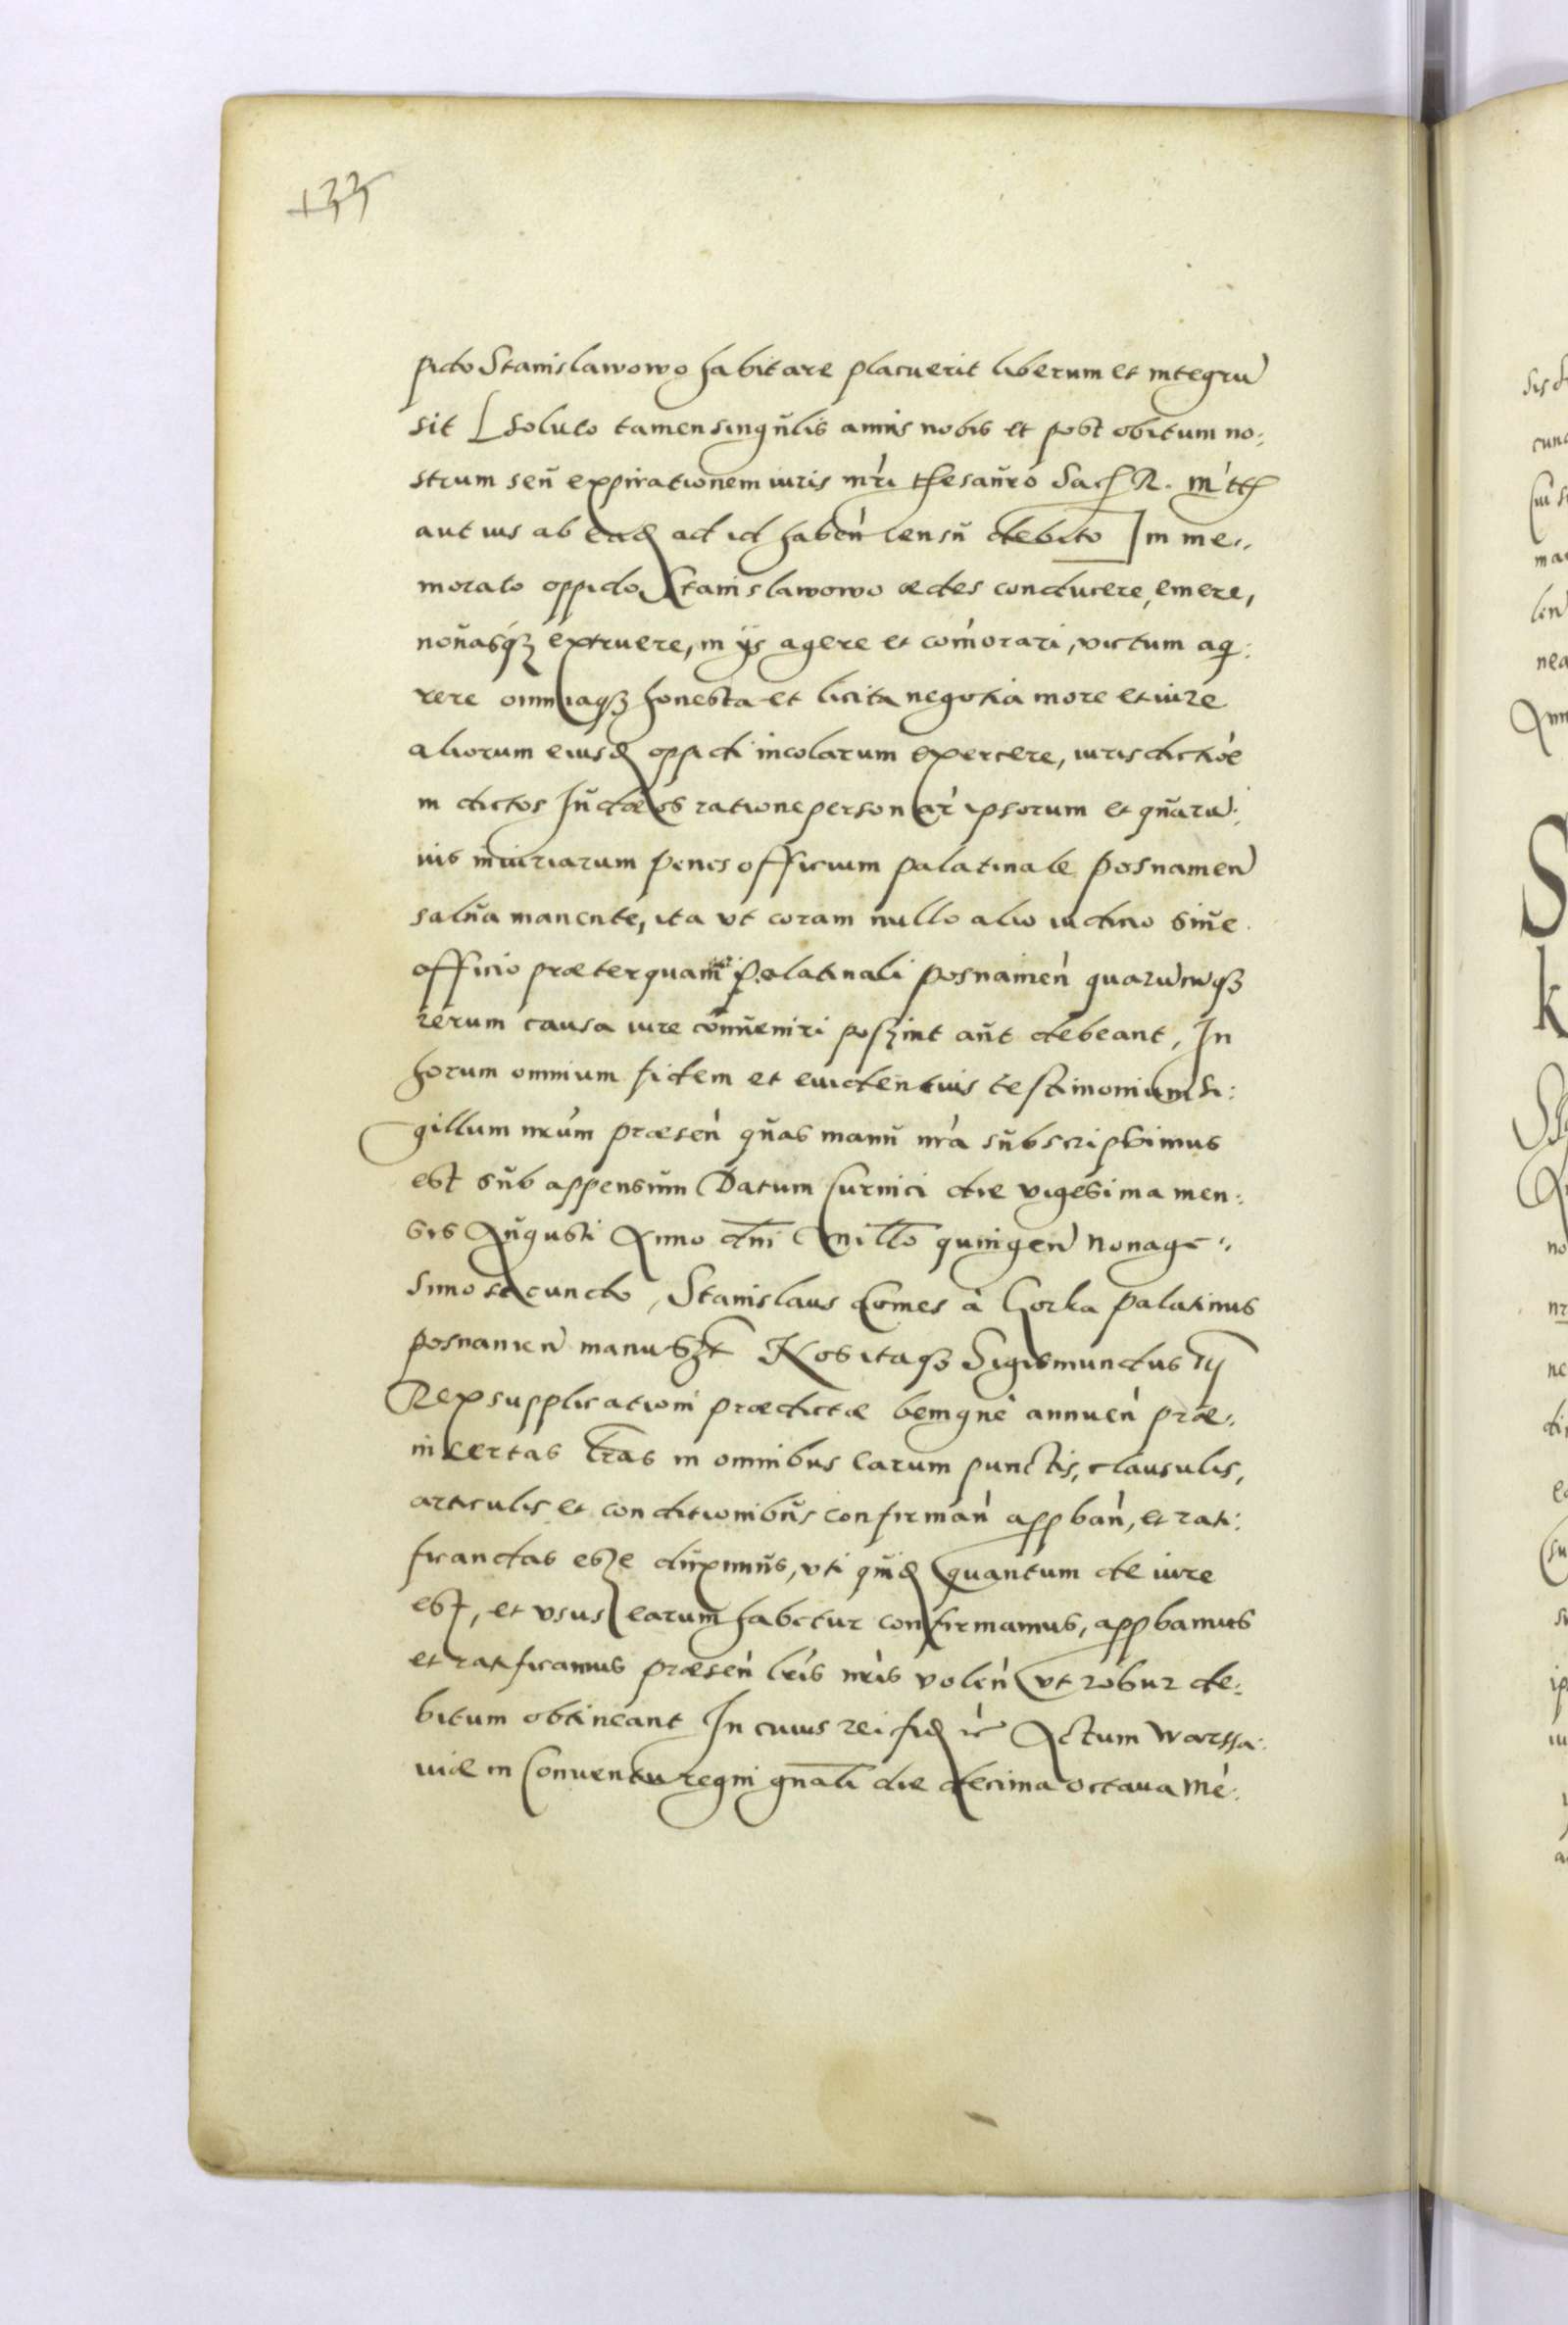 133
pido Stanislawowo habitare placuerit liberum et integrũ
sit [soluto tamen singŭlis annis nobis et post obitum no:
strum seŭ expirationem iuris nr̃i thesaŭro Sac R. m̃tt
aut ius ab ead ad id habeñ censŭ debito] In me:
morato oppido Stanislawowo ædes conducere, emere,
noŭasq3 extruere, in ijs agere et com̃orari, victum aq:
rere omniaq3 honesta et licita negotia more et iure
aliorum eiusd oppidi incolarum exercere, iurisdictiõe
in dictos Iŭdæos ratione personar̃ ipsorum et qŭarũ:
uis iniuriarum penes officium palatinale posnanien̄
salŭa manente, ita vt coram nullo alio iudicio siŭe
officio præterquam palatinali posnanień quarũcuq3
rerum causa iure conŭeniri poszint aŭt debeant, In
horum omnium fidem et euidentius testimonium si:
gillum nr̃um præseń qŭas manŭ nr̃a sŭbscripsimus
est sŭb appensŭm Datum Curnici die vigesima men:
sis Aŭgusti Anno dn̄i Mill̄o quingen̄ nonage:
simo secundo, Stanislaus Comes à Gorka palatinus
posnanien̄ manu szt Nos itaq3 Sigismundus iij
Rex supplicationi prædictæ benignè annueń præ:
incertas l̄ras in omnibus earum punctis, clausulis,
articulis et conditionibŭs confirmań appbań, et rati:
ficandas esze dŭximŭs, vti qŭid quantum de iure
est, et vsus earum habetur confirmamus, appbamus
et ratificamus præseń lr̃is nr̃is voleń vt robur de:
bitum obtineant In cuius rei fid ꝛc̃ Actum Warssa:
uiæ in Conuentu regni gn̄ali die decima octaua mẽ: